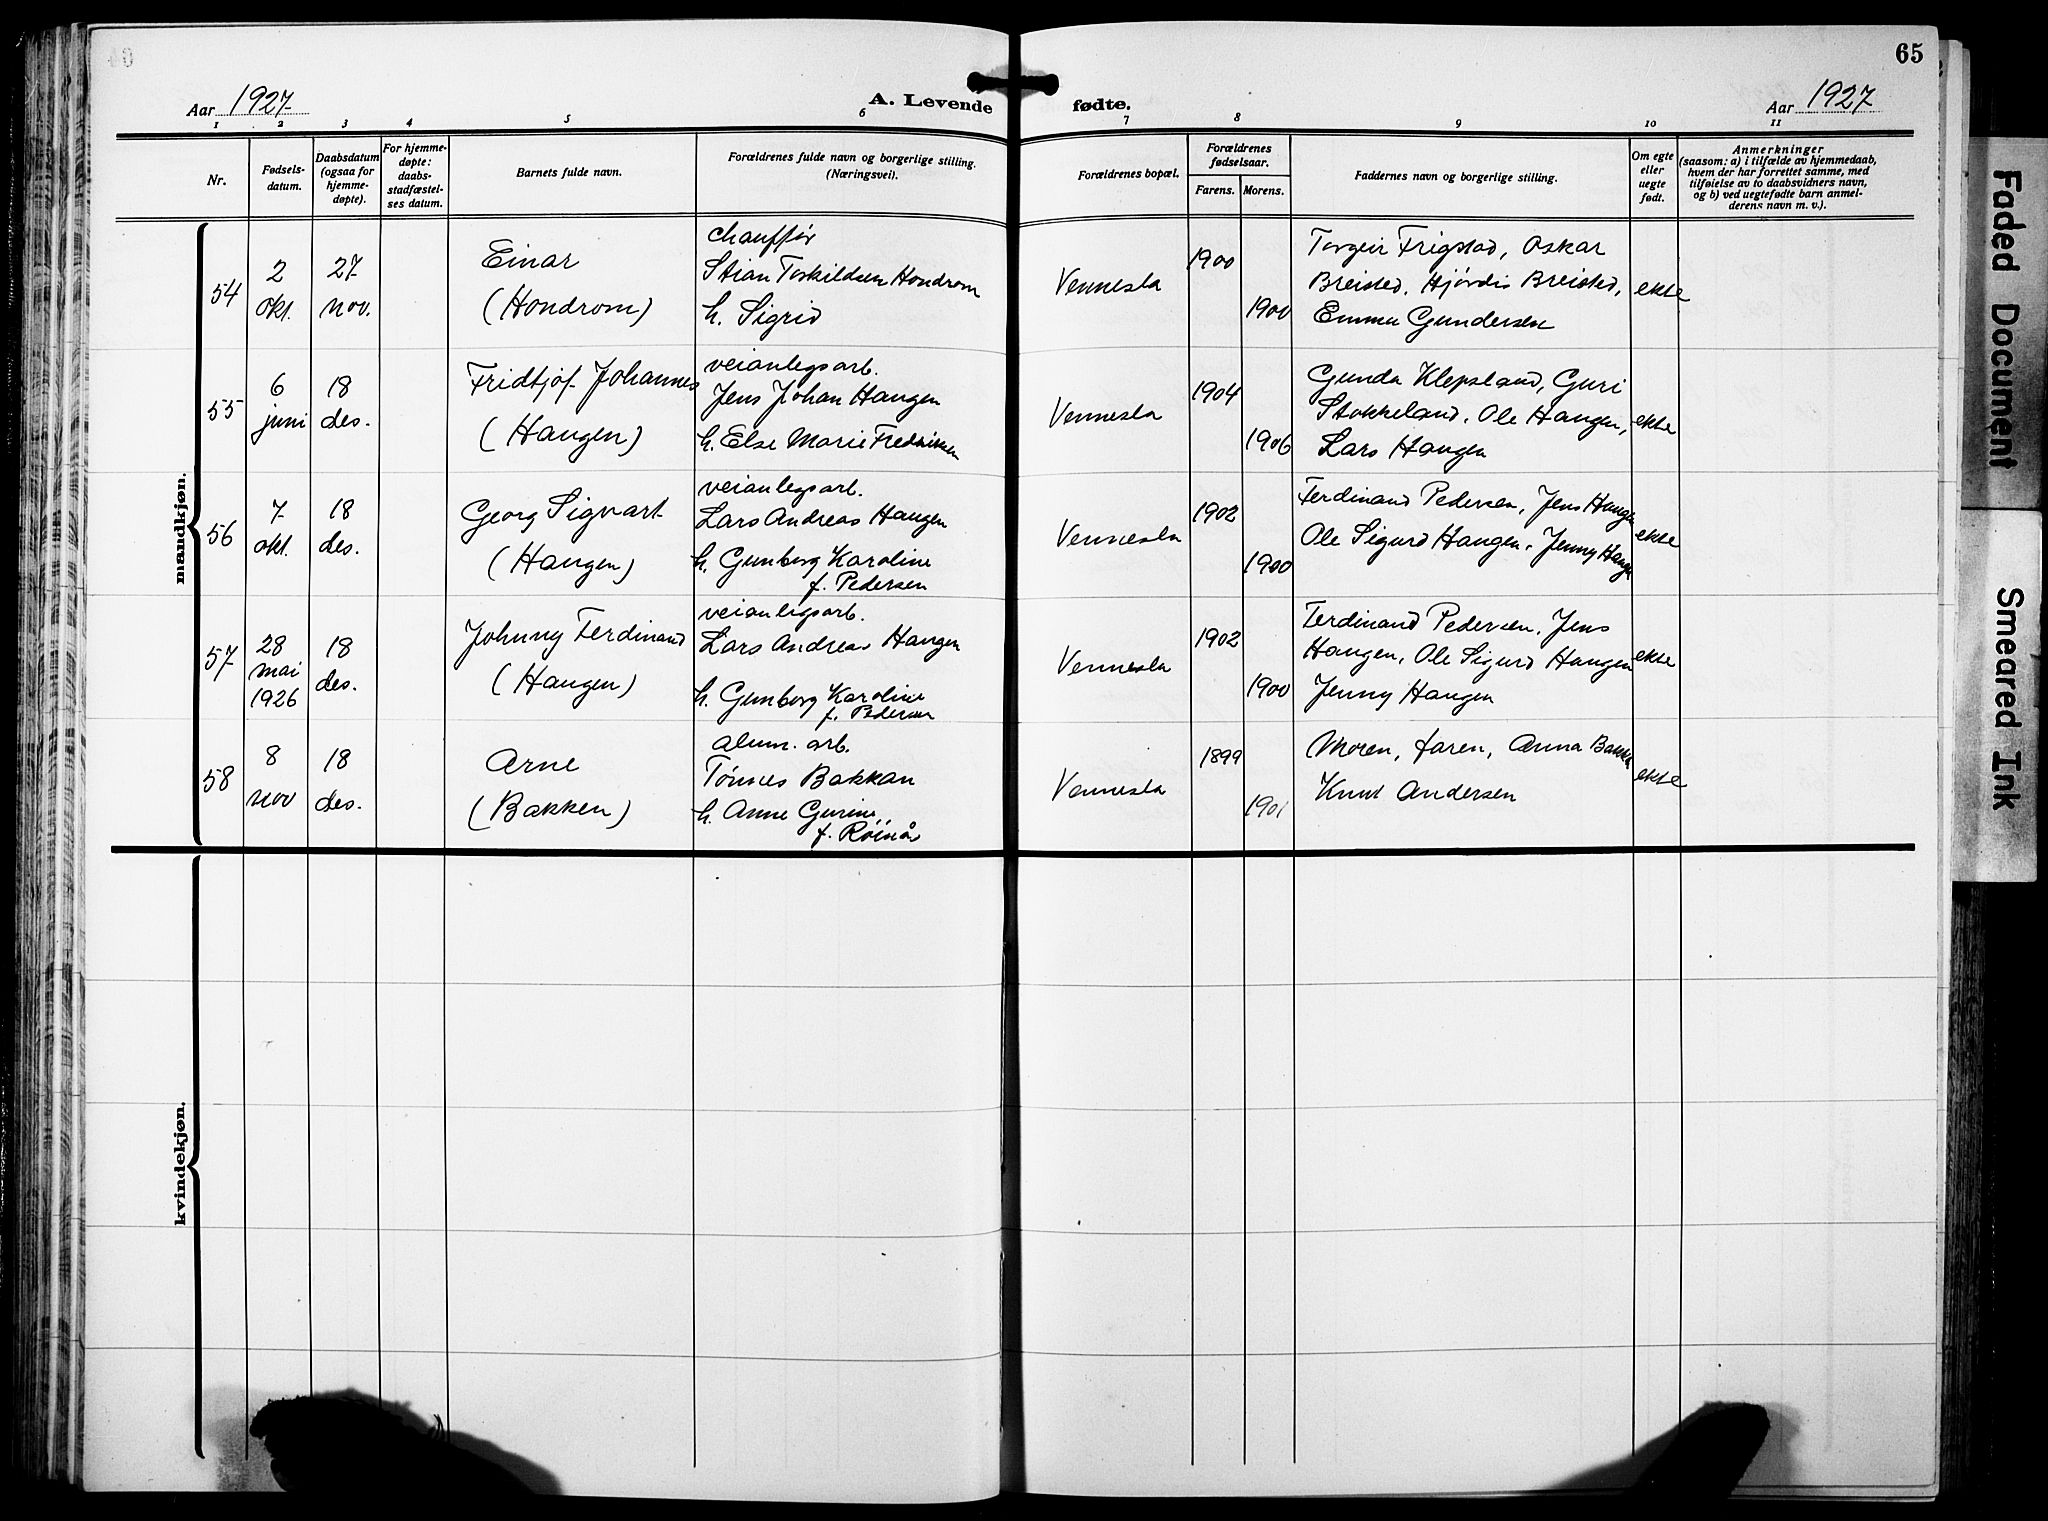 65
Aar 1927
A. Levende fødte.
Aar 1927
1 2 3 4 5 6 7 8 9 10 11
Nr.
Fødsels-
datum.
Daabsdatum
(ogsaa for
hjemme-
døpte).
For hjemme-
døpte:
daabs-
stadfæstel-
ses datum.
Barnets fulde navn.
Forældrenes fulde navn og borgerlige stilling.
(Næringsvei).
Forældrenes bopæl.
Forældrenes
fødselsaar.
Farens. Morens.
Faddernes navn og borgerlige stilling.
Om egte
eller
uegte
født.
Anmerkninger
(saasom: a) i tilfælde av hjemmedaab,
hvem der har forrettet samme, med
tilføielse av to daabsvidners navn,
og b) ved uegtefødte barn anmel-
derens navn m. v.).
mandkjøn.
54
2
okt.
27
nov.
Einar
(Hondrom)
chauffør
Stian Torkildsen Hondrom
h. Sigrid
Vennesla
1900
1900
Torgeir Frigstad, Oskar
Breisted, Hjørdis Breisted,
Emma Gundersen
ekte
55
6
juni
18
des.
Fridtjof Johannes
(Haugen)
veianlegsarb.
Jens Johan Haugen
h. Else Marie Fredriksen
Vennesla
1904
1906
Gunda Klepsland, Guri
Stokkeland, Ole Haugen,
Lars Haugen
ekte
56
7
okt.
18
des.
Georg Sigvart
(Haugen)
veianlegsarb.
Lars Andreas Haugen
h. Gunborg Karoline
f. Pedersen
Vennesla
1902
1900
Ferdinand Pedersen, Jens Haugen
Ole Sigurd Haugen, Jenny Haugen
ekte
57
28
mai
1926
18
des.
Johnny Ferdinand
(Haugen)
veianlegsarb.
Lars Andreas Haugen
h. Gunborg Karoline
f. Pedersen
Vennesla
1902
1900
Ferdinand Pedersen, Jens
Haugen, Ole Sigurd Haugen
Jenny Haugen
ekte
58
8
nov
18
des.
Arne
(Bakken)
alum. arb.
Tønnes Bakkan
h. Anne Gurine
f. Røinås
Vennesla
1899
1901
Moren, faren, Anna Bakken
Knut Andersen
ekte
kvindekjøn.
Faded Document
Smeared Ink